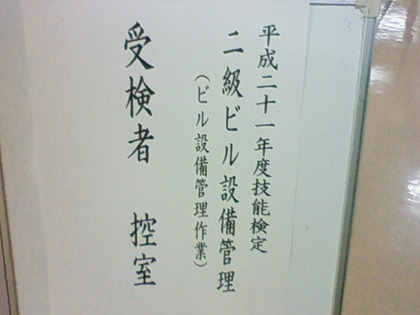 平成二十一年度技能検定
二級ビル設備管理
(ビル設備管理作業)
受検者 控室